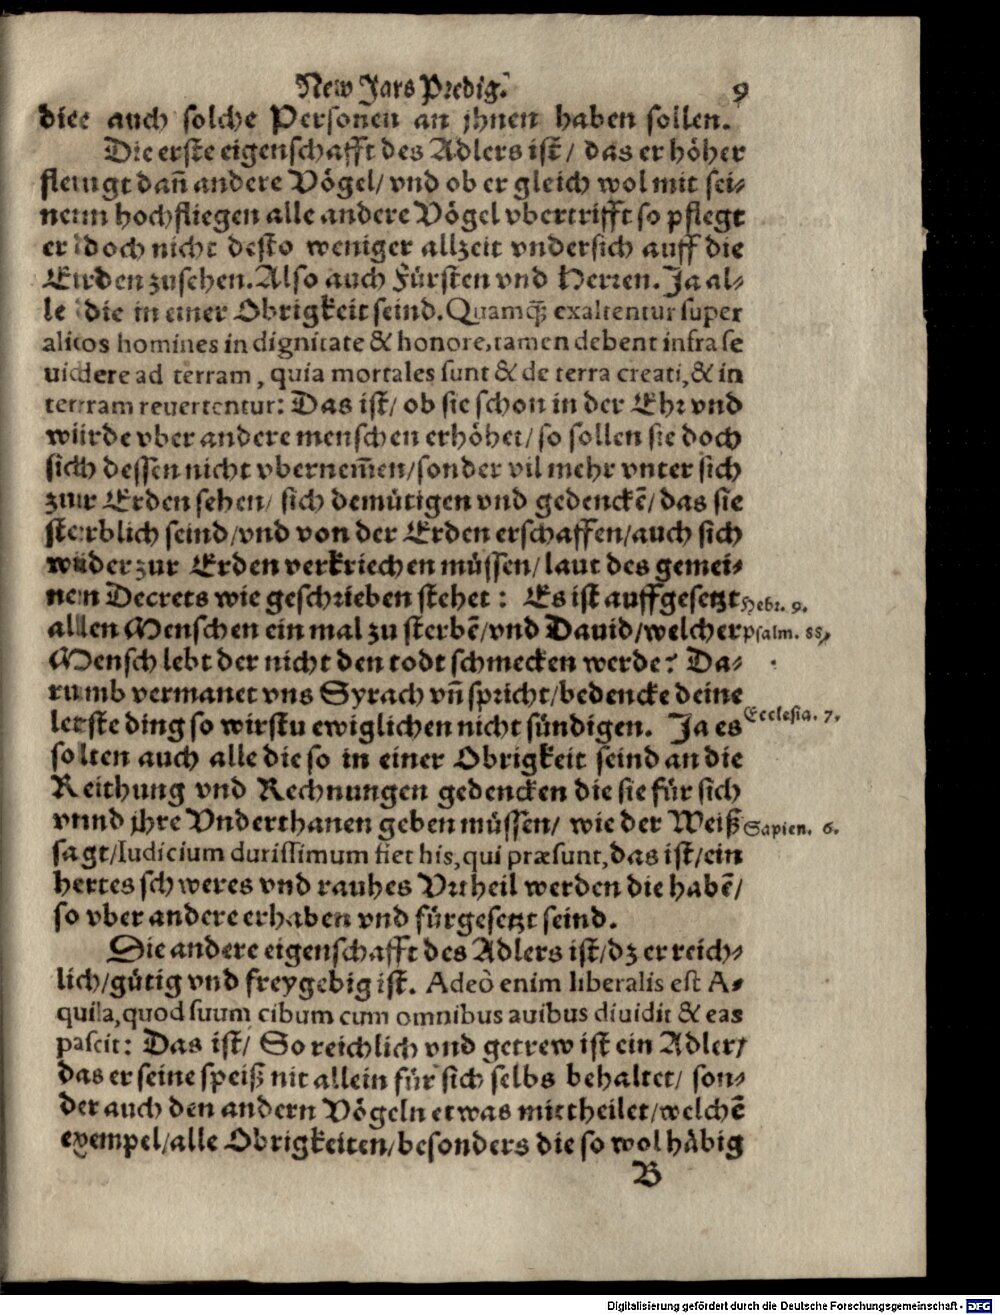 New Jars Predig. 9
die auch solche Personen an jhnen haben sollen.
Die erste eigenschafft des Adlers ist / das er höher
fleugt dañ andere Vögel / vnd ob er gleich wol mit sei⸗
nem hochfliegen alle andere Vögel vbertrifft so pflegt
er doch nicht desto weniger allzeit vndersich auff die
Erden zusehen. Also auch Fürsten vnd Herren. Ja al⸗
le die in einer Obrigkeit seind. Quamq́; exaltentur super
alios homines in dignitate & honore, tamen debent infra se
uidere ad terram, quia mortales sunt & de terra creati, & in
terram reuertentur: Das ist / ob sie schon in der Ehr vnd
würde vber andere menschen erhöhet / so sollen sie doch
sich dessen nicht vbernem̃en / sonder vil mehr vnter sich
zur Erden sehen / sich demütigen vnd gedenckē / das sie
sterblich seind / vnd von der Erden erschaffen / auch sich
wider zur Erden verkriechen müssen / laut des gemei⸗
nen Decrets wie geschrieben stehet : Es ist auffgesetzt Hebr. 9.
allen Menschen ein mal zu sterbē / vnd Dauid / welcher Psalm. 88.
Mensch lebt der nicht den todt schmecken werde? Da⸗
rumb vermanet vns Syrach vñ spricht / bedencke deine
letste ding so wirstu ewiglichen nicht sündigen. Ja es Ecclesia. 7.
solten auch alle die so in einer Obrigkeit seind an die
Reithung vnd Rechnungen gedencken die sie für sich
vnnd jhre Vnderthanen geben müssen / wie der Weiß Sapien. 6.
sagt / Iudicium durissimum fiet his, qui præsunt, das ist / ein
hertes schweres vnd rauhes Vrtheil werden die habē /
so vber andere erhaben vnd fürgesetzt seind.
Die andere eigenschafft des Adlers ist / dz er reich⸗
lich / gütig vnd freygebig ist. Adeò enim liberalis est A⸗
quila, quod suum cibum cum omnibus auibus diuidit & eas
pascit: Das ist / So reichlich vnd getrew ist ein Adler /
das er seine speiß nit allein für sich selbs behaltet / son⸗
der auch den andern Vögeln etwas mittheilet / welchē
exempel / alle Obrigkeiten / besonders die so wol häbig
B
Digitalisierung gefördert durch die Deutsche Forschungsgemeinschaft - DFG